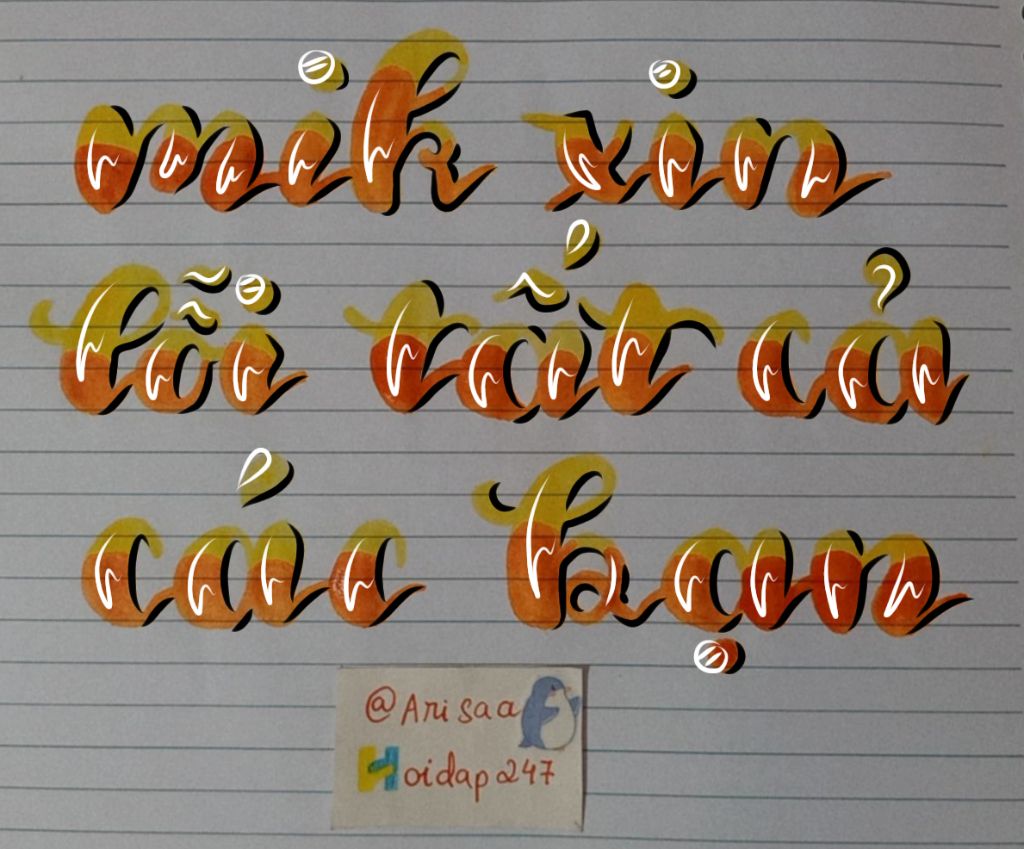 mik xin
lỗi tất cả
các bạn
@Arisaa
Hoidap247